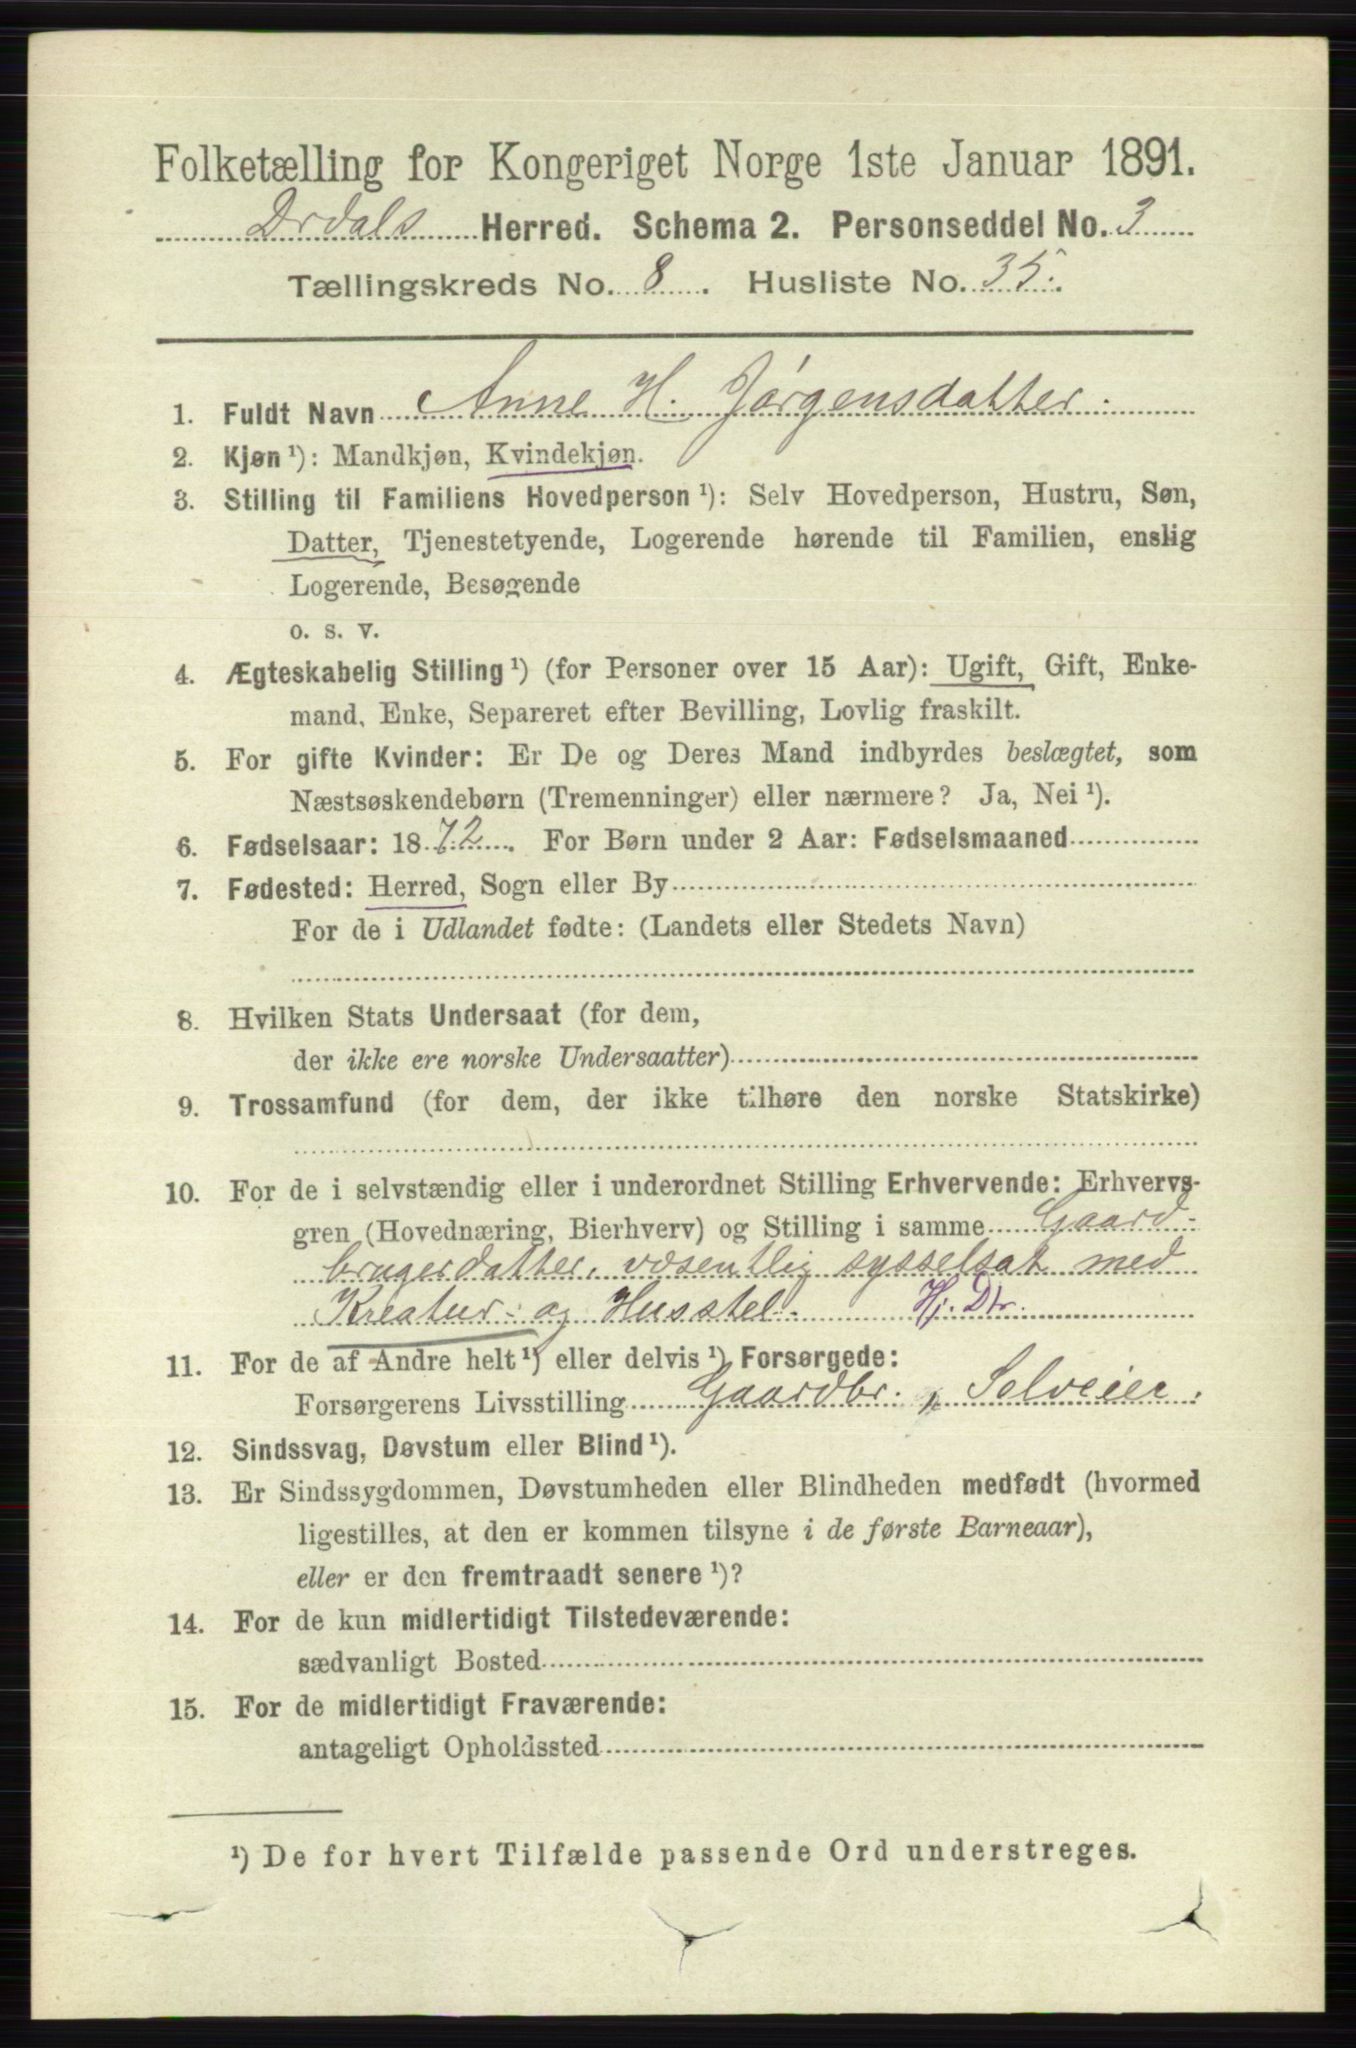 Folketælling for Kongeriget Norge 1ste Januar 1891.
Drdals Herred. Schema 2. Personseddel No. 3
Tællingskreds No. 8. Husliste No. 35.
1. Fuldt Navn Anne H. Jørgensdatter.
2. Kjøn ¹): Mandkjøn, Kvindekjøn.
3. Stilling til Familiens Hovedperson ¹): Selv Hovedperson, Hustru, Søn,
Datter, Tjenestetyende, Logerende hørende til Familien, enslig
Logerende, Besøgende
o. s. v.
4. Ægteskabelig Stilling ¹) (for Personer over 15 Aar): Ugift, Gift, Enke-
mand, Enke, Separeret efter Bevilling, Lovlig fraskilt.
5. For gifte Kvinder: Er De og Deres Mand indbyrdes beslægtet, som
Næstsøskendebørn (Tremenninger) eller nærmere? Ja, Nei ¹).
6. Fødselsaar: 1872. For Børn under 2 Aar: Fødselsmaaned
7. Fødested: Herred, Sogn eller By
For de i Udlandet fødte: (Landets eller Stedets Navn)
8. Hvilken Stats Undersaat (for dem,
der ikke ere norske Undersaatter)
9. Trossamfund (for dem, der ikke tilhøre den norske Statskirke)
10. For de i selvstændig eller i underordnet Stilling Erhvervende: Erhvervs-
gren (Hovednæring, Bierhverv) og Stilling i samme Gaard-
brugerdatter, væsentlig sysselsat med
Kreatur- og Husstel. Hj. Dtr.
11. For de af Andre helt ¹) eller delvis ¹) Forsørgede:
Forsørgerens Livsstilling Gaardbr., Selveier.
12. Sindssvag, Døvstum eller Blind ¹).
13. Er Sindssygdommen, Døvstumheden eller Blindheden medfødt (hvormed
ligestilles, at den er kommen tilsyne i de første Barneaar),
eller er den fremtraadt senere ¹)?
14. For de kun midlertidigt Tilstedeværende:
sædvanligt Bosted
15. For de midlertidigt Fraværende:
antageligt Opholdssted
¹) De for hvert Tilfælde passende Ord understreges.